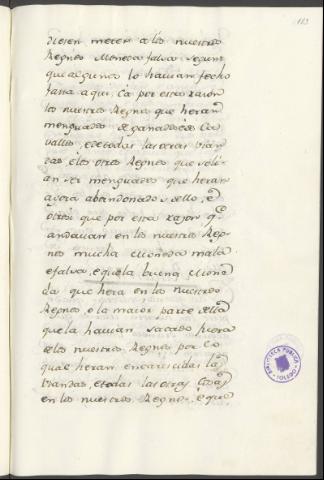 113
diesen meter a los nuestros
Regnos Moneda falsa segunt
que algunos lo havian fecho
fasta aqui. Ca por esta razon
los nuestros Regnos que heran
menguados de ganados é de Ca
vallos, é de todas las otras vian
das é los otros Regnos que soli-
an ser menguados que heran
agora abandonados dello, é
otrosi que por esta razon q.e
andavan en los nuestros Reg-
nos mucha moneda mala
é falsa, é que la buena mone
da que hera en los nuestros
Regnos, o la maior parte della
que la havian sacado fuera
de los nuestros Regnos por lo
qual heran encarescidas las
viandas, é todas las otras Cosas
en los nuestros Regnos, é que
BIBLIOTECA PUBLICA
TOLEDO